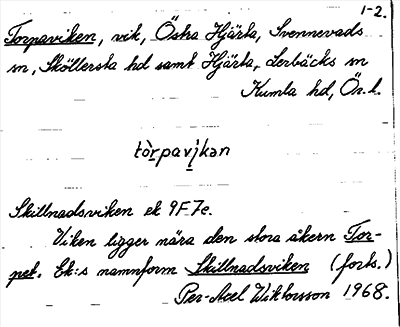 1-2.
Torpaviken, vik, Östra Hjärta, Svennevads
sn, Sköllersta hd samt Hjärta, Lerbäcks sn
Kumla hd, Ör. l.
tòrpavi̱kən
Skillnadsviken ek 9F7e.
Viken ligger nära den stora åkern Tor-
pet. Ek:s namnform Skillnadsviken (forts.)
Per-Axel Wiktorsson 1968.